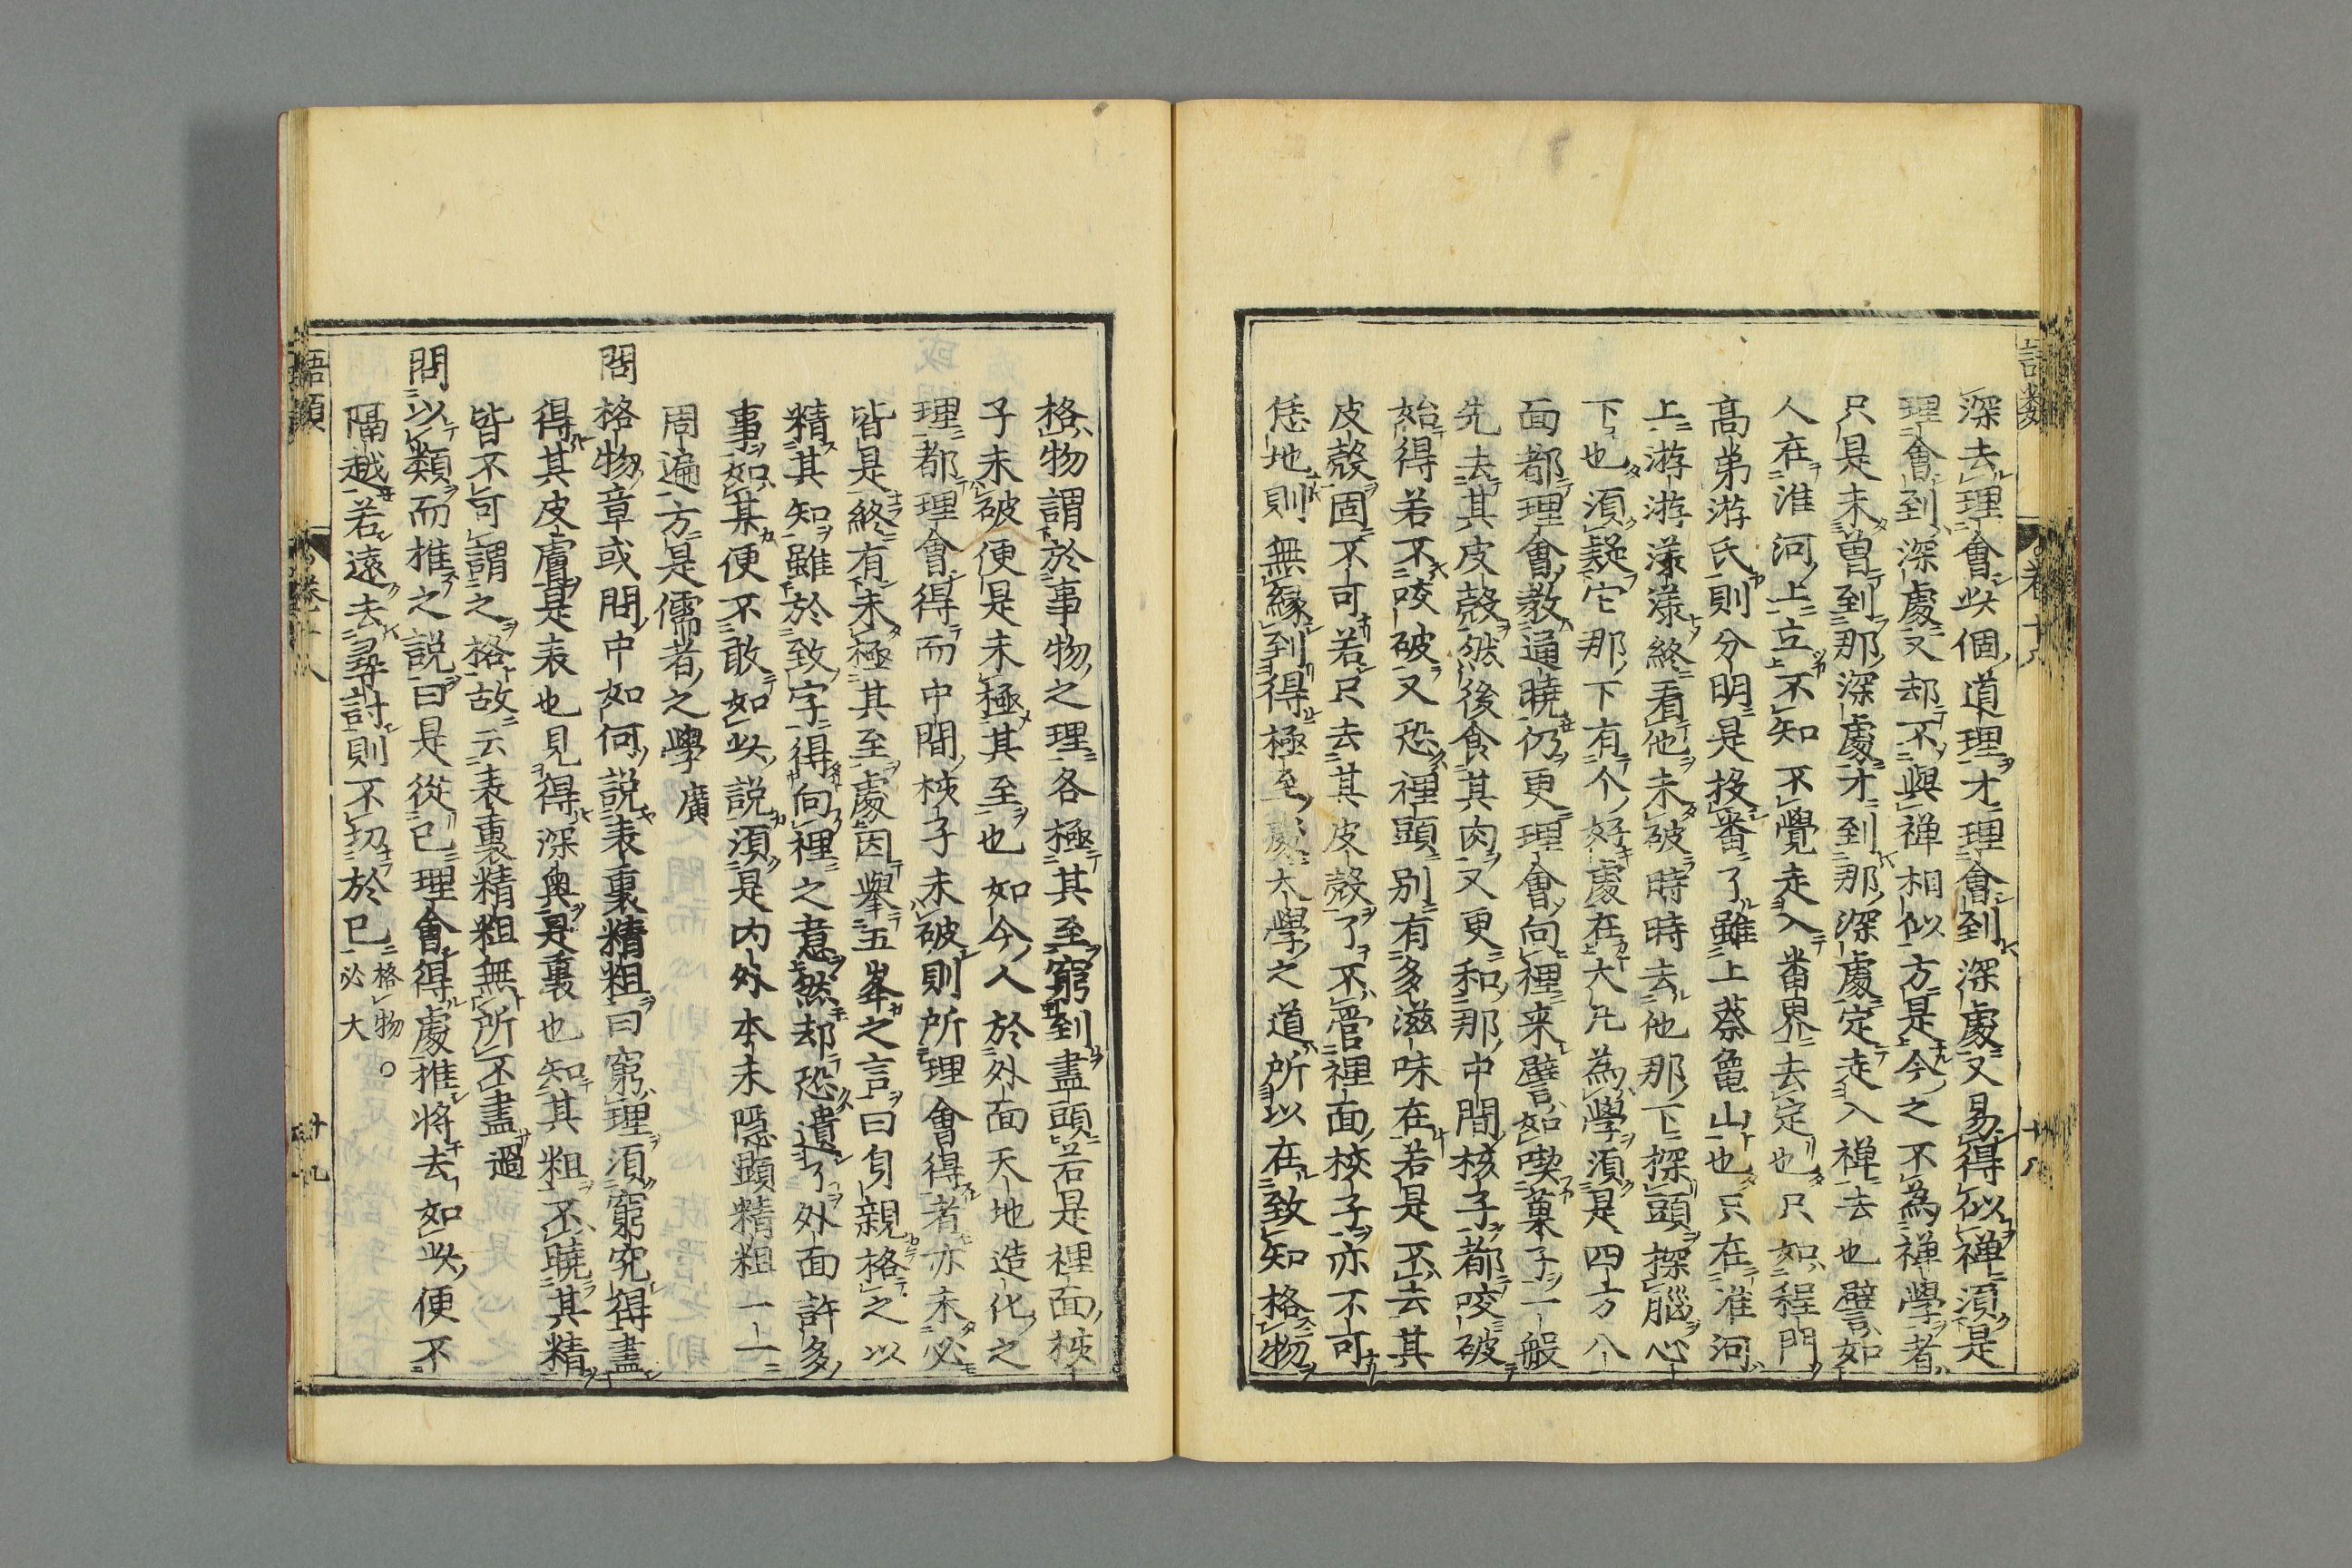 深去理會此個道理才理會到深處又易得似禅須是
理會到深處又却不與禅相似方是今之不為禅學者
只是未曽到那深處才到那深處定走入禅去也譬如
人在淮河上立不知不覺走入番界去定也只如程門
高弟游氏則分明是投番了雖上蔡龜山也只在淮河
上游游漾漾終看他未破時時去他那下探頭探腦心
下也須疑它那下有个好處在大凡為學須是四方八
面都理會教通曉仍更理會向裡来譬如喫菓子一般
先去其皮殼然後食其肉又更和那中間核子都咬破
始得若不咬破又恐裡頭別有多滋味在若是不去其
皮殼固不可若只去其皮殼了不管裡面核子亦不可
恁地則無緣到得極至處大學之道所以在致知格物
格物謂於事物之理各極其至窮到盡頭若是裡面核
子未破便是未極其至也如今人於外面天地造化之
理都理會得而中間核子未破則所理會得者亦未必
皆是終有未極其至處因舉五峯之言曰身親格之以
精其知雖於致字得向裡之意然却恐遺了外面許多
事如某便不敢如此說須是内外本末隠顯精粗一一
周遍方是儒者之學 廣
問格物章或問中如何說表裏精粗曰窮理須窮究得盡
得其皮膚是表也見得深奥是裏也知其粗不曉其精
皆不可謂之格故云表裏精粗無所不盡 過
問以類而推之說曰是從已理會得處推将去如此便不
隔越若遠去尋討則不切於已 必大 格物○
語類 卷十八 十九